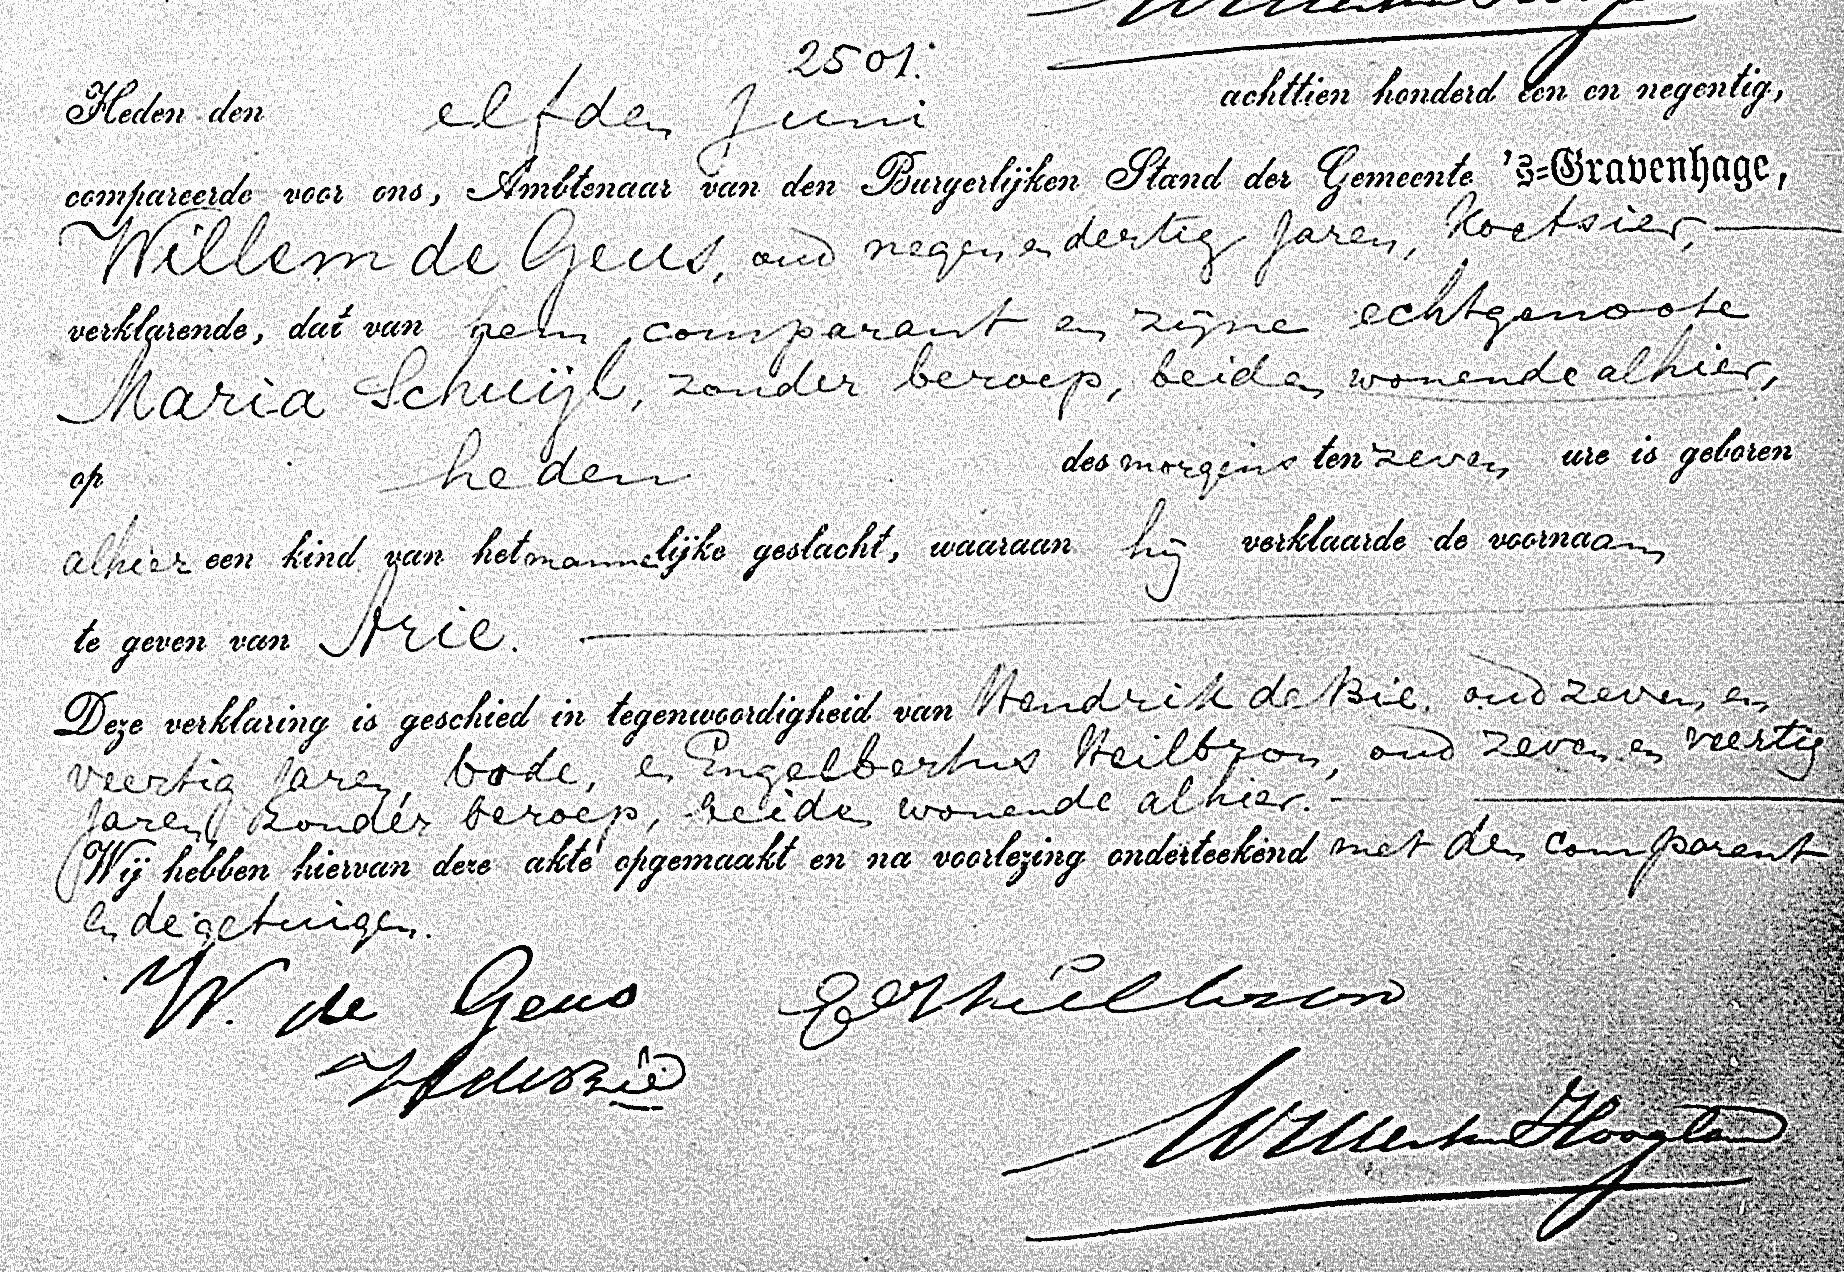 2501.
Heden den elfden Juni achttien honderd een en negentig,
compareerde voor ons, Ambtenaar van den Burgerlijken Stand der Gemeente 's-Gravenhage,
Willem de Geus, oud negen en dertig jaren, Koetsier,
verklarende, dat van hem comparant en zijne echtgenoote
Maria Schuijl, zonder beroep, beiden wonende alhier,
op heden des morgens ten zeven ure is geboren
alhier een kind van het mannelijke geslacht, waaraan hij verklaarde de voornaam
te geven van Arie.
Deze verklaring is geschied in tegenwoordigheid van Hendrik de Bie, oud zeven en
veertig jaren, bode, en Engelbertus Heilbron, oud zeven en veertig
jaren, zonder beroep, beiden wonende alhier.
Wij hebben hiervan deze akte opgemaakt en na voorlezing onderteekend met den comparant
en de getuigen.
W. de Geus
HdeBie